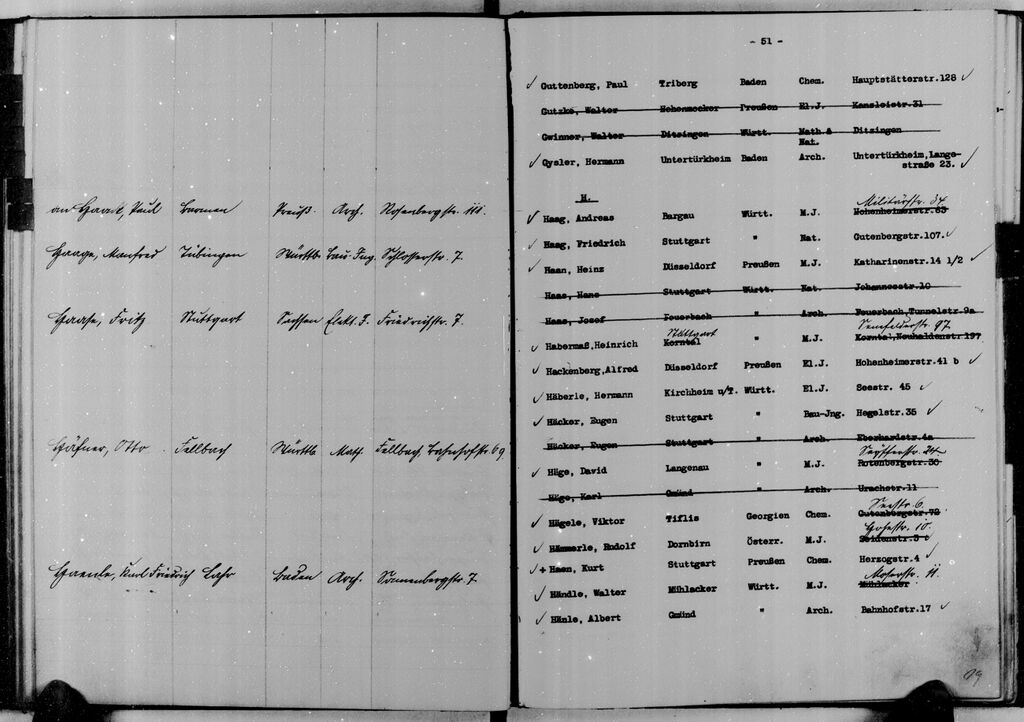 an Haack, Paul Barmen Preuß. Arch. Rosenbergstr. 111.
Haage, Manfred Tübingen Württb. Bau-Ing. Schlosserstr. 7.
Haase, Fritz Stuttgart Sachsen Elekt. J. Friedrichstr. 7.
Häfner, Otto Fellbach Württb Math. Fellbach, Bahnhofstr. 69
Haenle, Karl Friedrich Lahr Baden Arch. Sonnenbergstr. 7
- 51 -
✓ Guttenberg, Paul Triberg Baden Chem. Hauptstätterstr.128 ✓
Gutzke, Walter Hohenmocker Preußen El.J. Kanzleistr.31
Gwinner, Walter Ditzingen Württ. Math.& Ditzingen
Nat.
✓ Gysler, Hermann Untertürkheim Baden Arch. Untertürkheim,Lange-
straße 23. ✓
H.
Militärstr. 34
✓ Haag, Andreas Bargau Württ. M.J. Hohenheimerstr.63
✓ Haag, Friedrich Stuttgart " Nat. Gutenbergstr.107. ✓
✓ Haan, Heinz Düsseldorf Preußen M.J. Katharinenstr.14 1/2 ✓
Haas, Hans Stuttgart Württ. Nat. Johannesstr.10
Haas, Josef Feuerbach " Arch. Feuerbach,Tunnelstr.9a
Stuttgart Senefelderstr. 97
✓ Habermaß,Heinrich Korntal " M.J. Korntal,Neuhaldenstr.197
✓ Hackenberg,Alfred Düsseldorf Preußen El.J. Hohenheimerstr.41 b ✓
✓ Häberle, Hermann Kirchheim u/T. Württ. El.J. Seestr. 45 ✓
✓ Häcker, Eugen Stuttgart " Bau-Jng. Hegelstr.35 ✓
Häcker, Eugen Stuttgart " Arch. Eberhardstr.4a
✓ Häge, David Langenau " M.J. Rotenbergstr.30
Häge, Karl Gmünd " Arch. Urachstr.11
Seestr. 6.
✓ Hägele, Viktor Tiflis Georgien Chem. Gutenbergstr.72
✓ Hämmerle, Rudolf Dornbirn Österr. M.J. Seidenstr.3
✓ + Haen, Kurt Stuttgart Preußen Chem. Herzogstr.4 ✓
Moserstr. 11.
✓ Händle, Walter Mühlacker Württ. M.J. Mühlacker
✓ Hänle, Albert Gmünd " Arch. Bahnhofstr.17 ✓